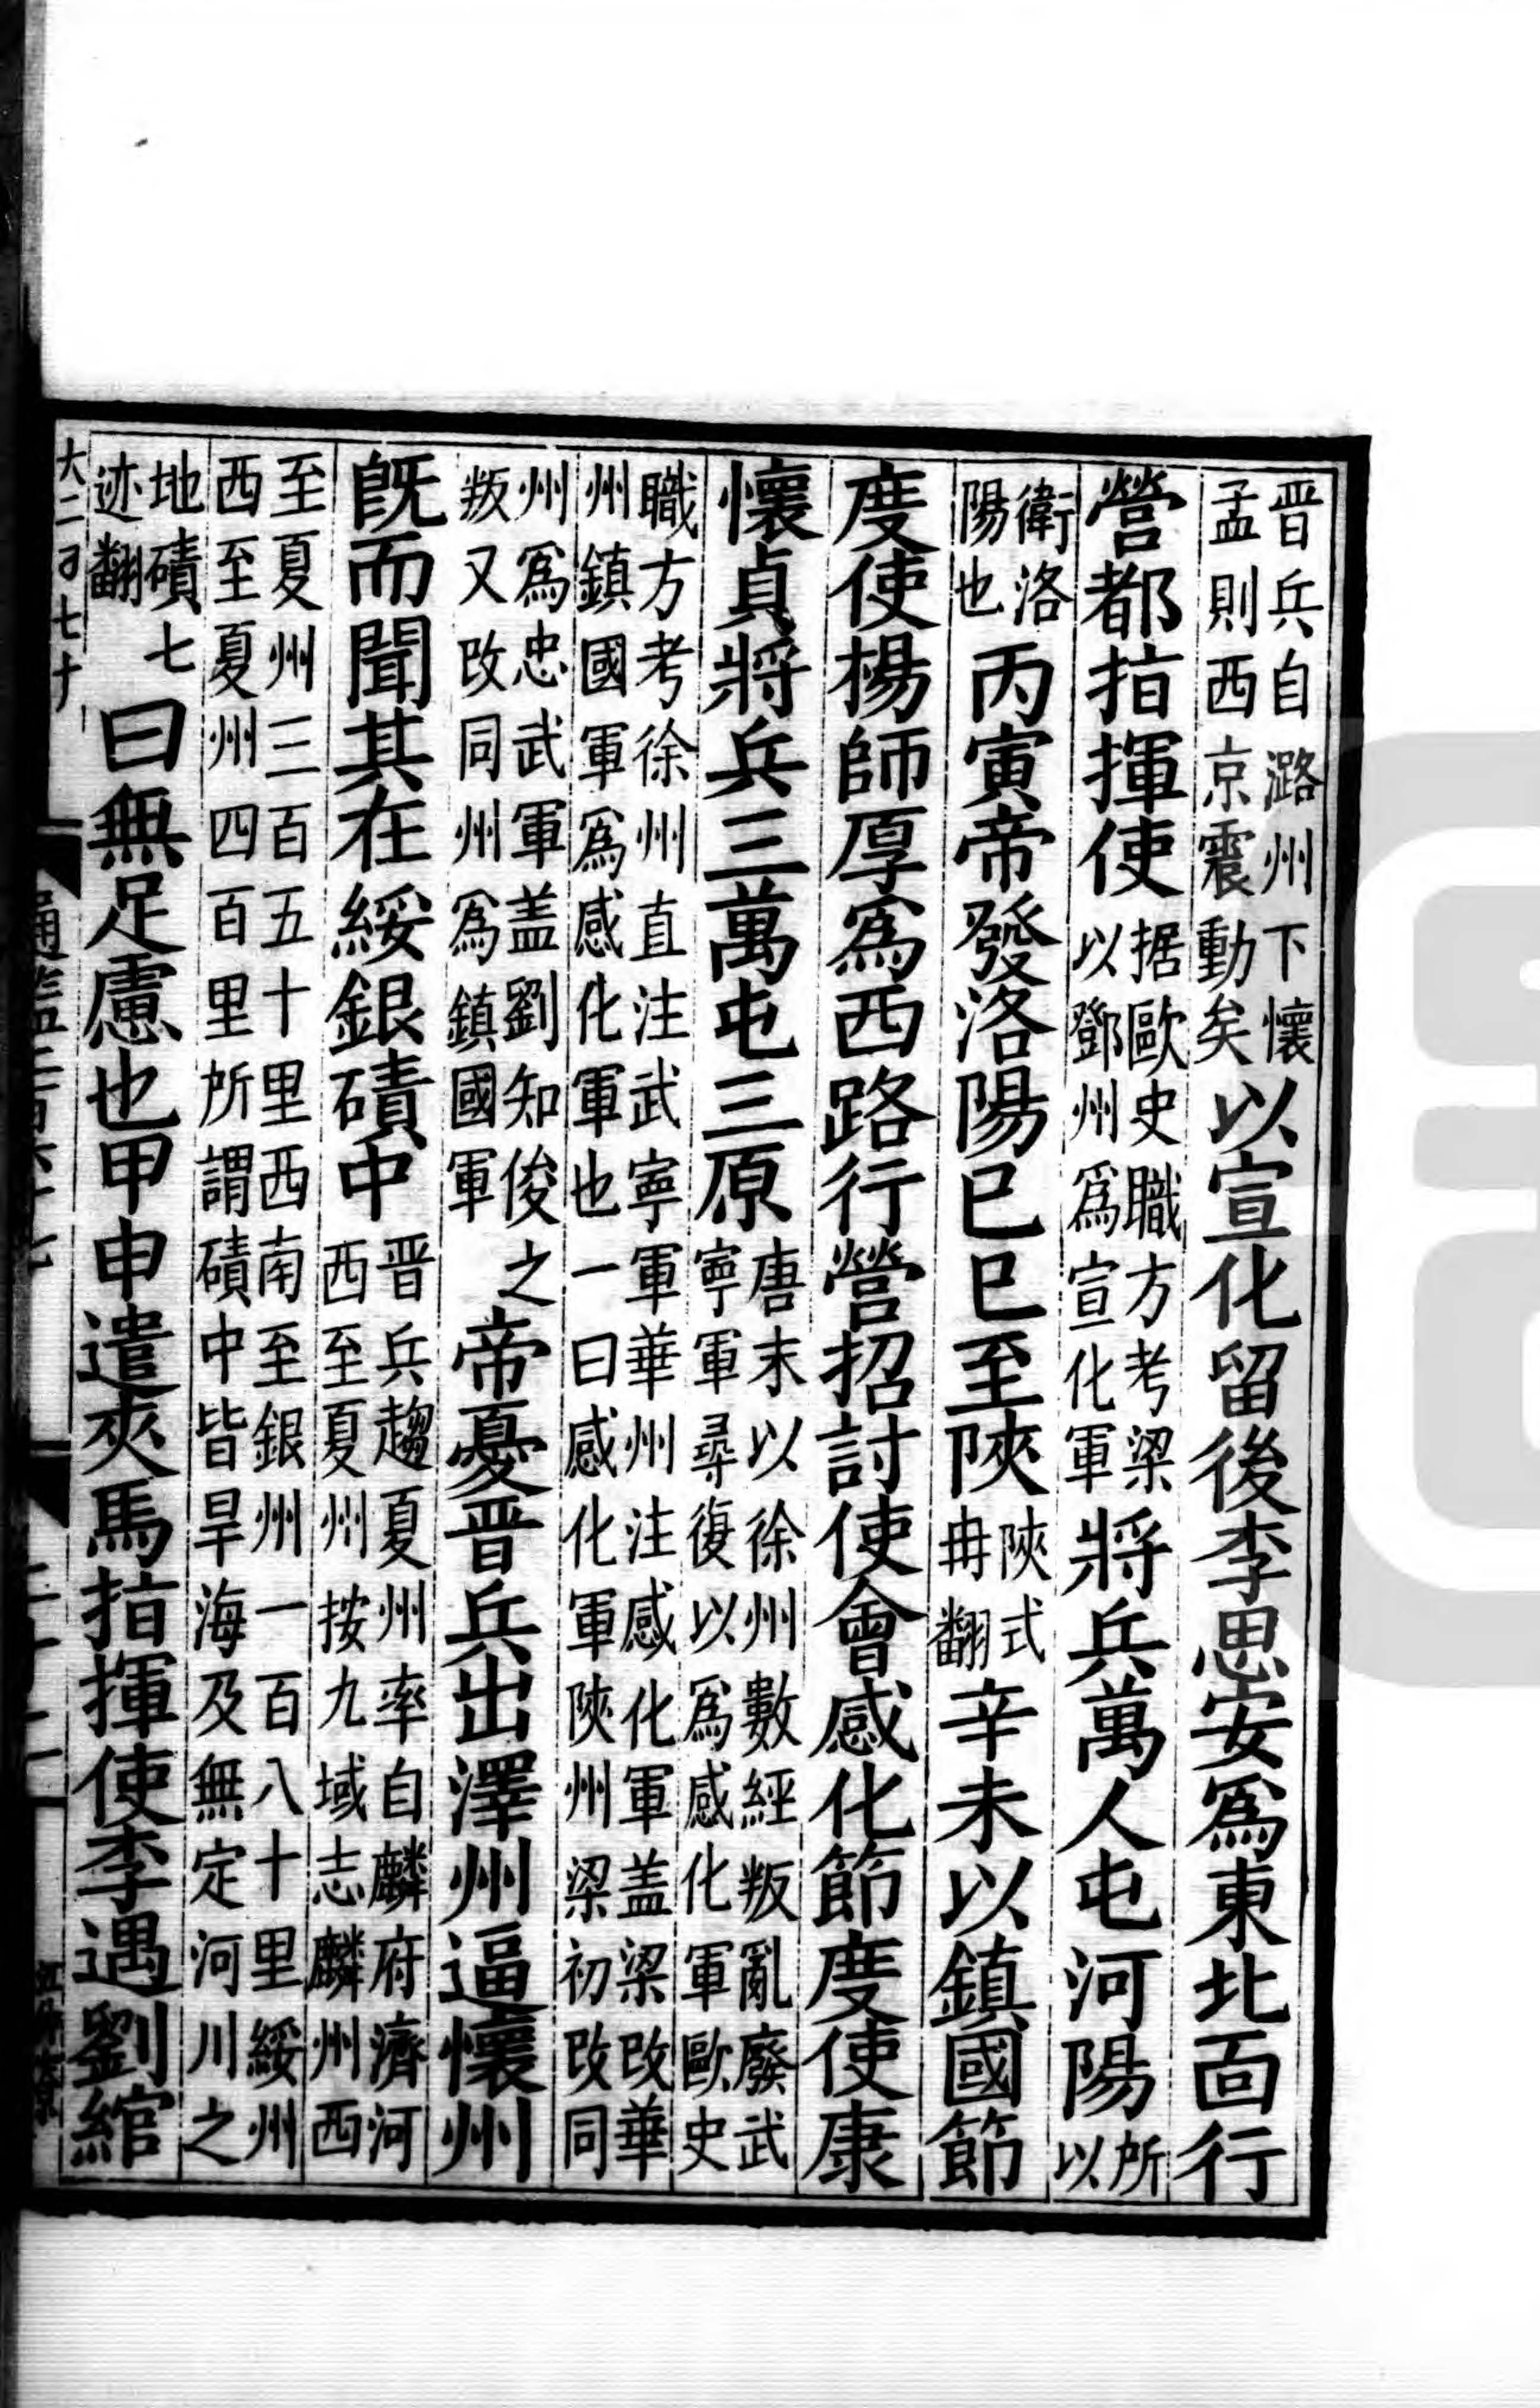 晋兵自潞州下懷孟則西京震動矣以宣化留後李思安爲東北面行
營都指揮使据歐史職方考梁以鄧州爲宣化軍將兵萬人屯河陽所以
衛洛陽也丙寅帝發洛陽己巳至陜陜式冉翻辛未以鎮國節
度使楊師厚爲西路行營招討使會感化節度使康
懷貞將兵三萬屯三原唐末以徐州數經叛亂廢武寧軍尋復以爲感化軍歐史
職方考徐州直注武寧軍華州注感化軍盖梁改華州鎮國軍爲感化軍也一曰感化軍陜州梁初改同
州爲忠武軍盖劉知俊之叛又改同州爲鎮國軍帝憂晋兵出澤州逼懷州
旣而聞其在綏銀磧中晋兵趨夏州率自麟府濟河西至夏州按九域志麟州西
至夏州三百五十里西南至銀州一百八十里綏州西至夏州四百里所謂磧中皆旱海及無定河川之
地磧七迹翻曰無足慮也甲申遣夾馬指揮使李遇劉綰